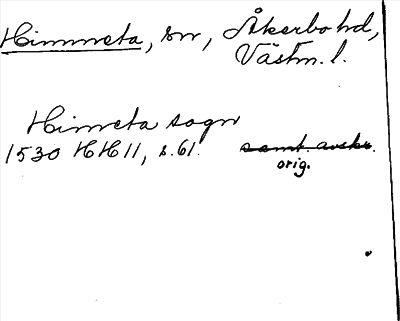 Himmeta, sn, Åkerbo hd,
Västm. l.
Himeta sogn
1530 HH 11, s. 61. samt. avskr.
orig.